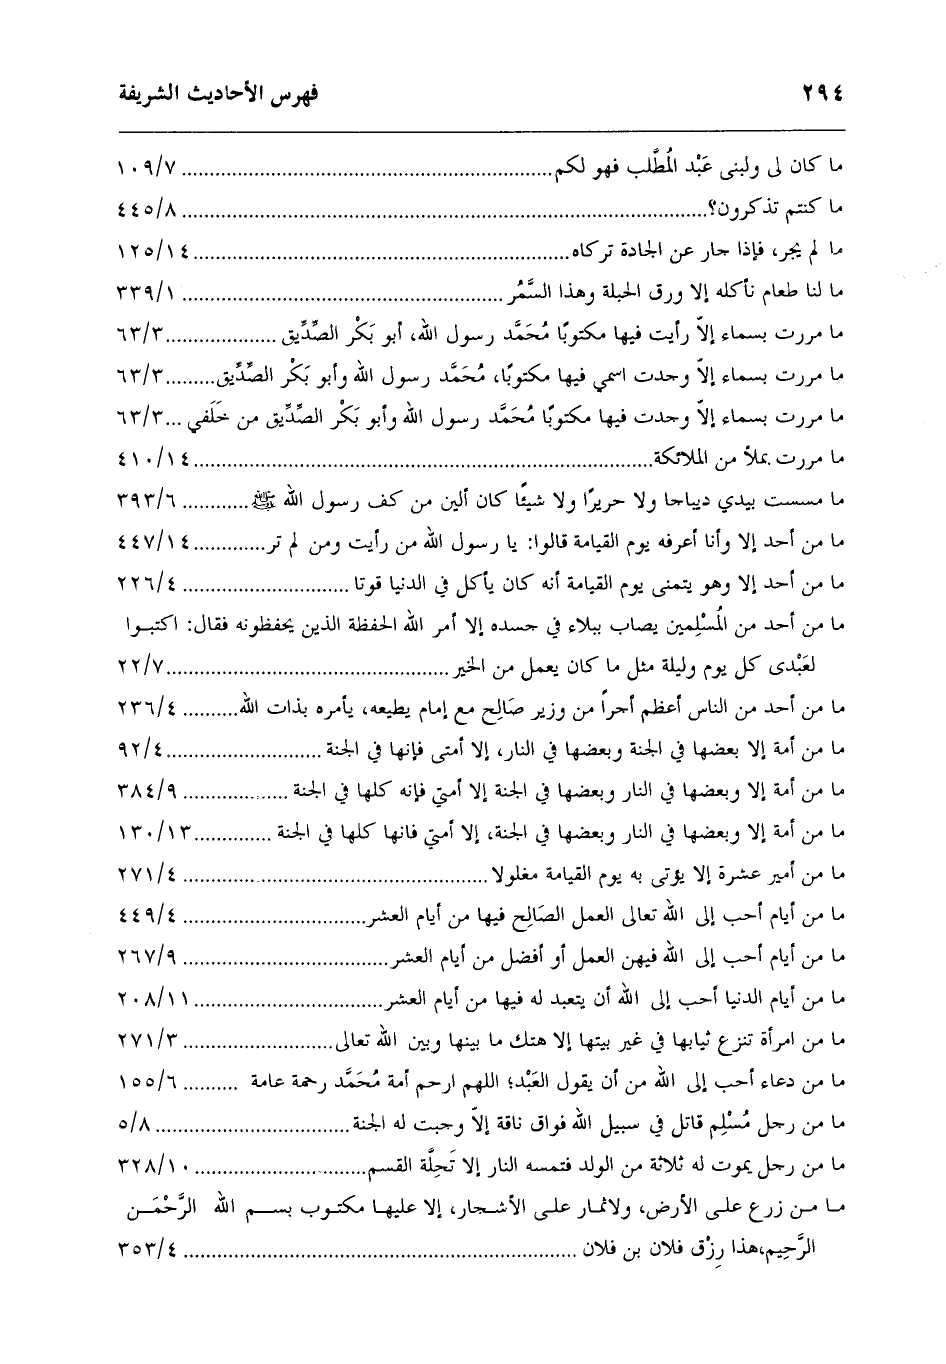 ٢٩٤ فهرس الأحاديث الشريفة
ما كان لى ولبنى عَبْد المُطَّلب فهو لكم ........ ١٠٩/٧
ما كنتم تذكرون؟ ........ ٤٤٥/٨
ما لم يجر، فإذا حار عن الجادة تركاه ........ ١٢٥/١٤
ما لنا طعام نأكله إلا ورق الحبلة وهذا السَّمُر ........ ٣٣٩/١
ما مررت بسماء إلاّ رأيت فيها مكتوبًا مُحَمَّد رسول الله، أبو بَكْر الصِّدِّيق ........ ٦٣/٣
ما مررت بسماء إلاّ وجدت اسمي فيها مكتوبًا، مُحَمَّد رسول الله وأبو بَكْر الصِّدِّيق ........ ٦٣/٣
ما مررت بسماء إلاّ وجدت فيها مكتوبًا مُحَمَّد رسول الله وأبو بَكْر الصِّدِّيق من خَلَفي ... ٦٣/٣
ما مررت بملأ من الملائكة ........ ٤١٠/١٤
ما مسست بيدي ديباجا ولا حريرًا ولا شيئًا كان ألين من كف رسول الله ﷺ ........ ٣٩٣/٦
ما من أحد إلا وأنا أعرفه يوم القيامة قالوا: يا رسول الله من رأيت ومن لم تر ........ ٤٤٧/١٤
ما من أحد إلا وهو يتمنى يوم القيامة أنه كان يأكل في الدنيا قوتا ........ ٢٢٦/٤
ما من أحد من المُسْلِمين يصاب ببلاء في جسده إلا أمر الله الحفظة الذين يحفظونه فقال: اكتبوا
لعَبْدى كل يوم وليلة مثل ما كان يعمل من الخير ........ ٢٢/٧
ما من أحد من الناس أعظم أجراً من وزير صَالِح مع إمام يطيعه، يأمره بذات الله ........ ٢٣٦/٤
ما من أمة إلا بعضها في الجنة وبعضها في النار، إلا أمتى فإنها في الجنة ........ ٩٢/٤
ما من أمة إلا وبعضها في النار وبعضها في الجنة إلا أمتي فإنه كلها في الجنة ........ ٣٨٤/٩
ما من أمة إلا وبعضها في النار وبعضها في الجنة، إلا أمتي فانها كلها في الجنة ........ ١٣٠/١٣
ما من أمير عشرة إلا يؤتى به يوم القيامة مغلولا ........ ٢٧١/٤
ما من أيام أحب إلى الله تعالى العمل الصَالِح فيها من أيام العشر ........ ٤٤٩/٤
ما من أيام أحب إلى الله فيهن العمل أو أفضل من أيام العشر ........ ٢٦٧/٩
ما من أيام الدنيا أحب إلى الله أن يتعبد له فيها من أيام العشر ........ ٢٠٨/١١
ما من امرأة تنزع ثيابها في غير بيتها إلا هتك ما بينها وبين الله تعالى ........ ٢٧١/٣
ما من دعاء أحب إلى الله من أن يقول العَبْد؛ اللهم ارحم أمة مُحَمَّد رحمة عامة ........ ١٥٥/٦
ما من رجل مُسْلِم قاتل في سبيل الله فواق ناقة إلاّ وجبت له الجنة ........ ٥/٨
ما من رجل يموت له ثلاثة من الولد فتمسه النار إلا تَحِلَّة القسم ........ ٣٢٨/١٠
ما من زرع على الأرض، ولاثمار على الأشجار، إلا عليها مكتوب بسم الله الرَّحْمَن
الرَّحِيم،هذا رِزْق فلان بن فلان ........ ٣٥٣/٤